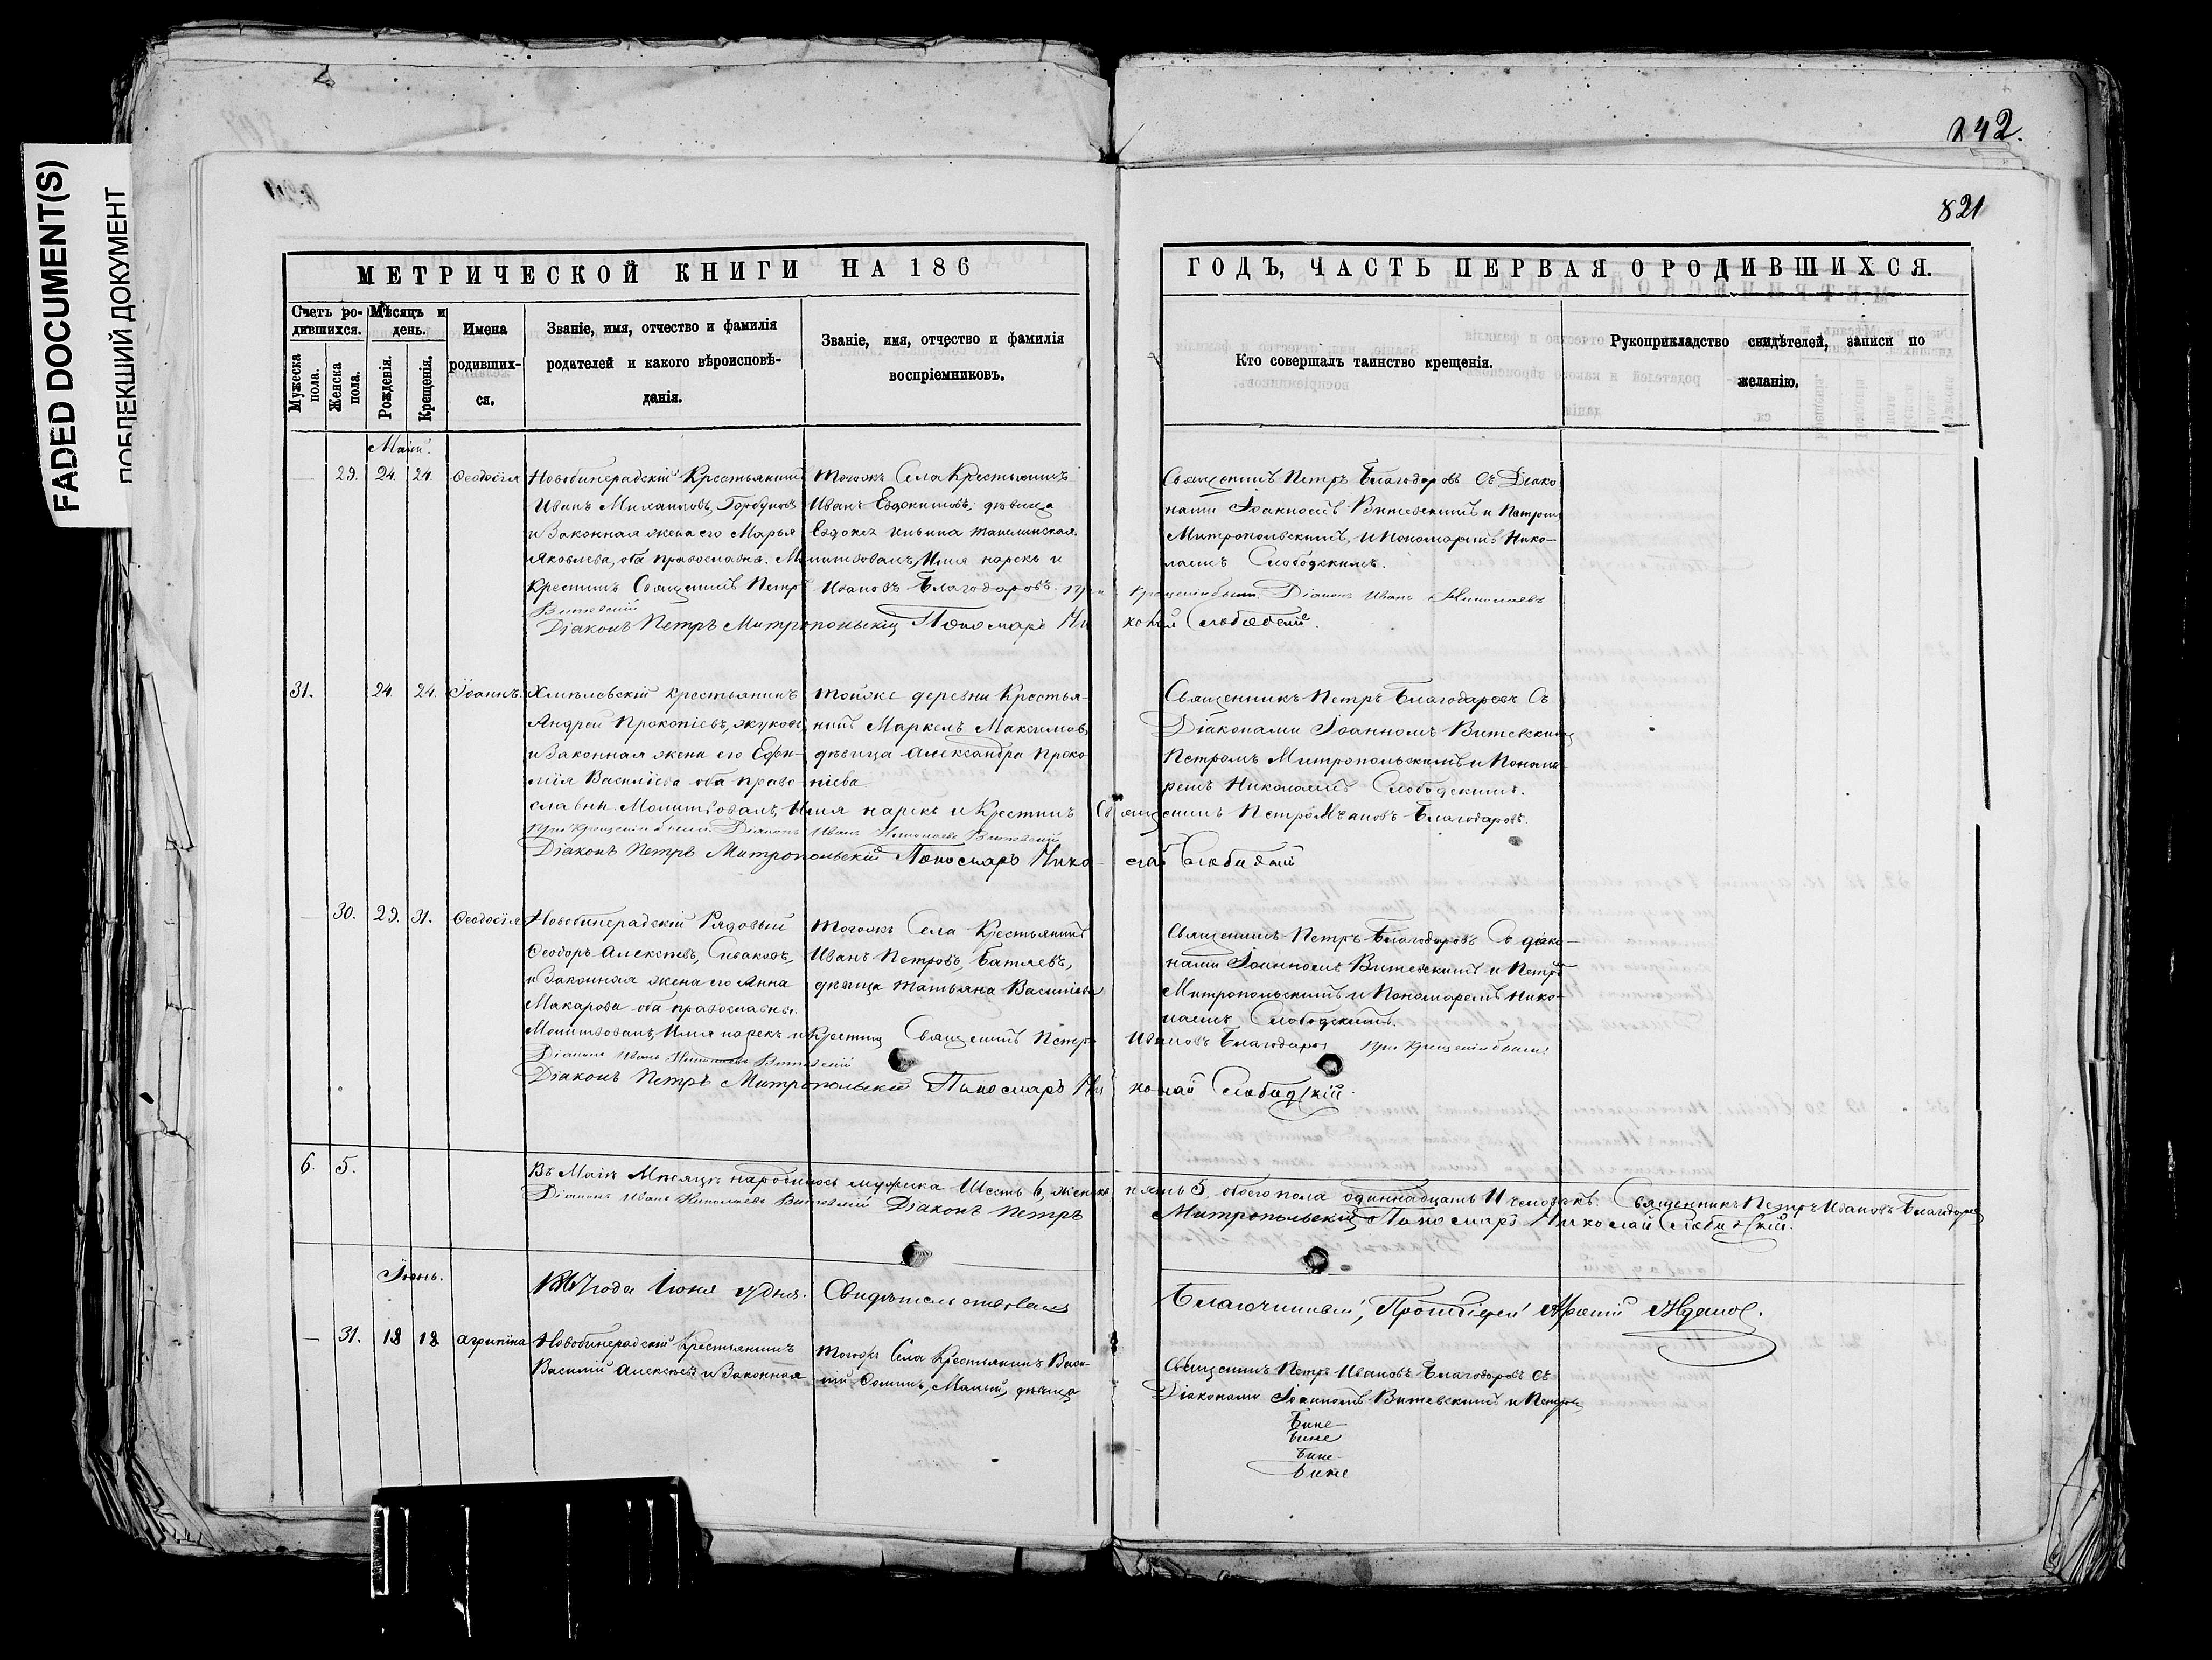 FADED DOCUMENT(S)
ПОБЛЕКШИЙ ДОКУМЕНТ
242.
821
МЕТРИЧЕСКОЙ КНИГИ НА 186
ГОДЪ, ЧАСТЬ ПЕРВАЯ О РОДИВШИХСЯ.
Счетъ ро-
дившихся.
Мужеска
пола.
Женска
пола.
Мѣсяцъ и
день.
Рожденія.
Крещенія.
Имена
родивших-
ся.
Званіе, имя, отчество и фамилія
родателей и какого вѣроисповѣ-
данія.
Званіе, имя, отчество и фамилія
воспріемниковъ.
Кто совершалъ таинство крещенія.
Рукоприкладство свидѣтелей, записи по
желанію.
— 29. 24. 24. Ѳеодосія
Крестьянинъ
Иванъ Михаиловъ, Горбуновъ
и Законная жена его Марья
Яковлева, оба православн. Молитвовалъ, Имя нарекъ и
Крестилъ Священникъ Петръ Ивановъ Благодаровъ. при
Витевскій
Діаконъ Петръ Митропольскій Пономарь Ни
Тогожъ Села Крестьянинъ
Иванъ Евдокимовъ, дѣвица
Священникъ Петръ Благодаровъ Съ Діако
нами Іоанномъ Витевскимъ и Петромъ
Митропольскимъ, и Пономаремъ Нико-
лаемъ Слободскимъ.
крещеніи были Діаконъ Иванъ Николаевъ
колай Слободскій.
31. 24. 24. Іоаннъ.
Хмѣлевскій крестьянинъ
Андрей Прокопіевъ, Жуковъ,
и Законная жена его Ефи-
мія Василіева оба право
славны. Молитвовалъ, Имя нарекъ и Крестилъ Священникъ Петръ Ивановъ Благодаровъ.
При крещеніи были Діаконъ Иванъ Николаевъ Витевскій
Діаконъ Петръ Митропольскій Пономарь Нико-
лай Слободскій
Тойже деревни Крестья-
нинъ Маркелъ Максимовъ,
дѣвица Александра Проко
піева
Священникъ Петръ Благодаровъ Съ
Діаконами Іоанномъ Витевскимъ
Петромъ Митропольскимъ и Понома-
ремъ Николаемъ Слободскимъ.
— 30. 29. 31. Ѳеодосія
Рядовый
Ѳеодоръ Алексѣевъ, Сиваковъ,
и Законная жена его Анна
Макарова оба православны.
Молитвовалъ, Имя нарекъ и Крестилъ Священникъ Петръ Ивановъ Благодаровъ При Крещеніи были:
Діаконъ Иванъ Николаевъ Витевскій
Діаконъ Петръ Митропольскій Пономарь Ни
колай Слободскій.
Тогожъ Села Крестьянинъ
Иванъ Петровъ, Батяевъ,
дѣвица Татьяна Василіева
Священникъ Петръ Благодаровъ Съ діако-
нами Іоанномъ Витевскимъ и Петромъ
Митропольскимъ и Пономаремъ Нико-
лаемъ Слободскимъ.
6. 5.
Въ Маіѣ Мѣсяцѣ народилось мужеска Шесть 6, женска пять 5, обоего пола одиннадцать 11 человѣкъ. Священникъ Петръ Ивановъ Благодаровъ
Діаконъ Иванъ Николаевъ Витевскій Діаконъ Петръ
Митропольскій Пономарь Николай Слободскій.
Іюнь.
1867 года Іюня дня. Свидѣтельствовалъ
Благочинный, Протоіерей
— 31. 18 18 Агрипина
Крестьянинъ
Василій Алексѣевъ и Законная
Тогожъ Села Крестьянинъ Васи-
лій Ѳоминъ, Малый, дѣвица
Священникъ Петръ Ивановъ Благодаровъ Съ
Діаконами Іоанномъ Витевскимъ и Петромъ